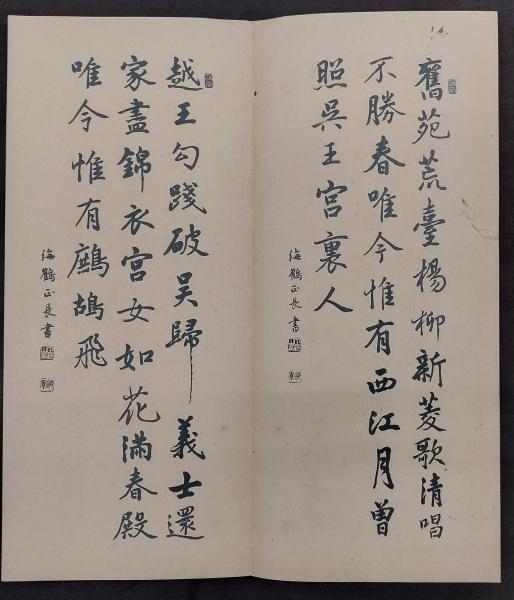 舊苑荒臺楊柳新菱歌清唱
不勝春唯今惟有西江月曾
照吳王宮裏人
海鶴正長書
越王勾踐破吴歸義士還
家盡錦衣宮女如花滿春殿
唯今惟有鷓鴣飛
海鶴正長書